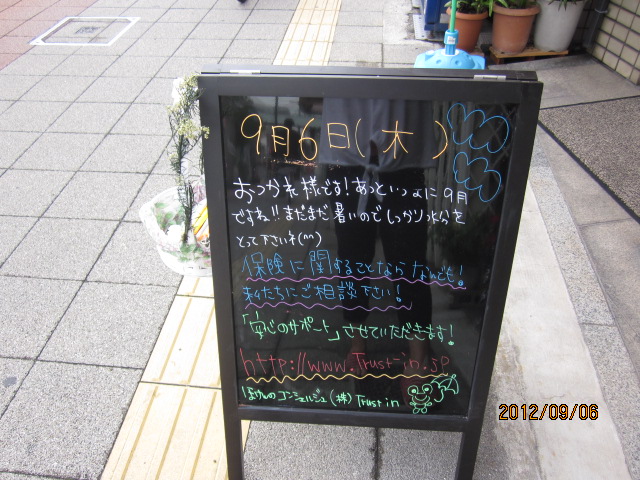 9月6日(木)
おつかれ様です!あっというまに9月
ですね!!まだまだ暑いのでしっかり水分を
とって下さいネ(^^)
保険に関することならなんでも!
私たちにご相談下さい!
「安心のサポート」させていただきます!
http://www.Trust-in.jp
ほけんのコンシェルジュ(株)Trust in
2012/09/06